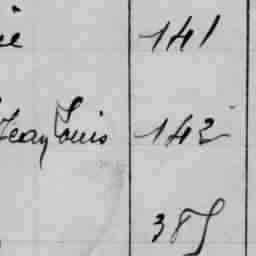 ie 141
Jean Louis 142
385